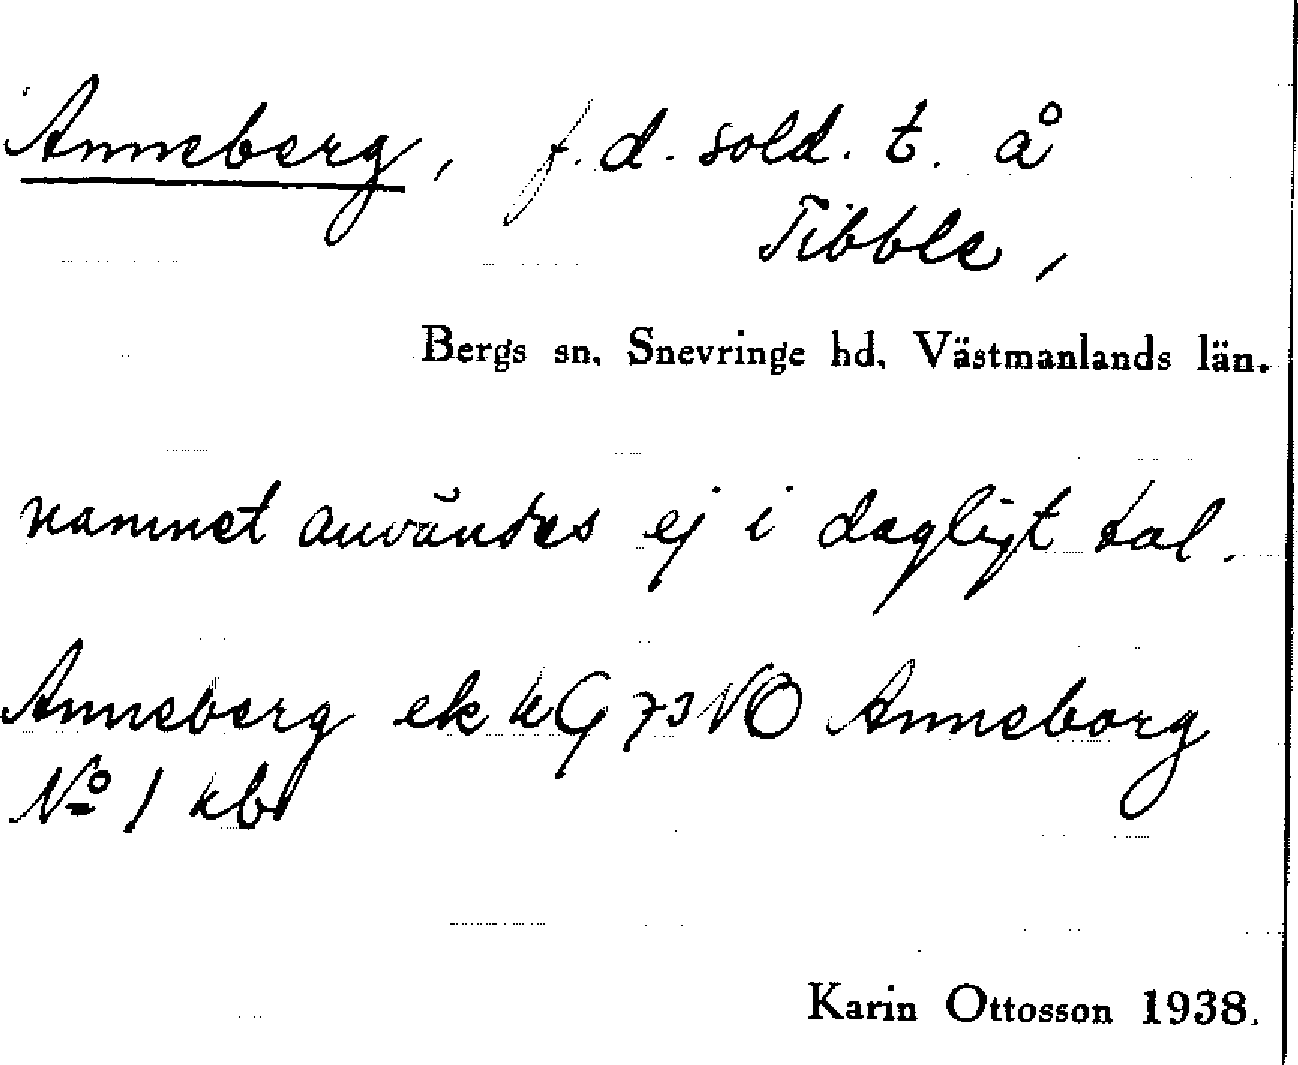 Anneberg, f.d. sold. t. å
Tibble,
Bergs sn, Snevringe hd, Västmanlands län.
namnet användes ej i dagligt tal.
Anneberg ek kG 73 NO Anneborg
No 1 kb
Karin Ottosson 1938.